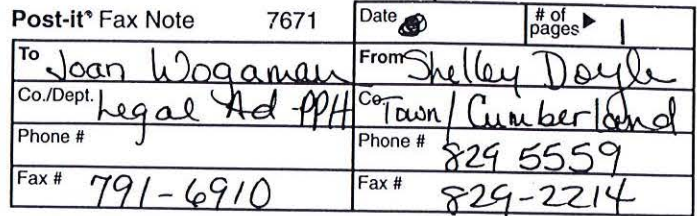 Post-it® Fax Note 7671 Date # of pages ▶ 1
To Joan Wogaman From Shelley Doyle
Co./Dept. Legal Ad PPH Co. Town/Cumberland
Phone # Phone # 829 5559
Fax # 791-6910 Fax # 829-2214